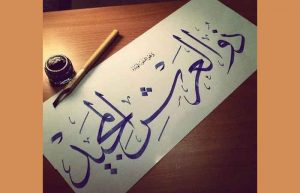 ذو العرش المجيد